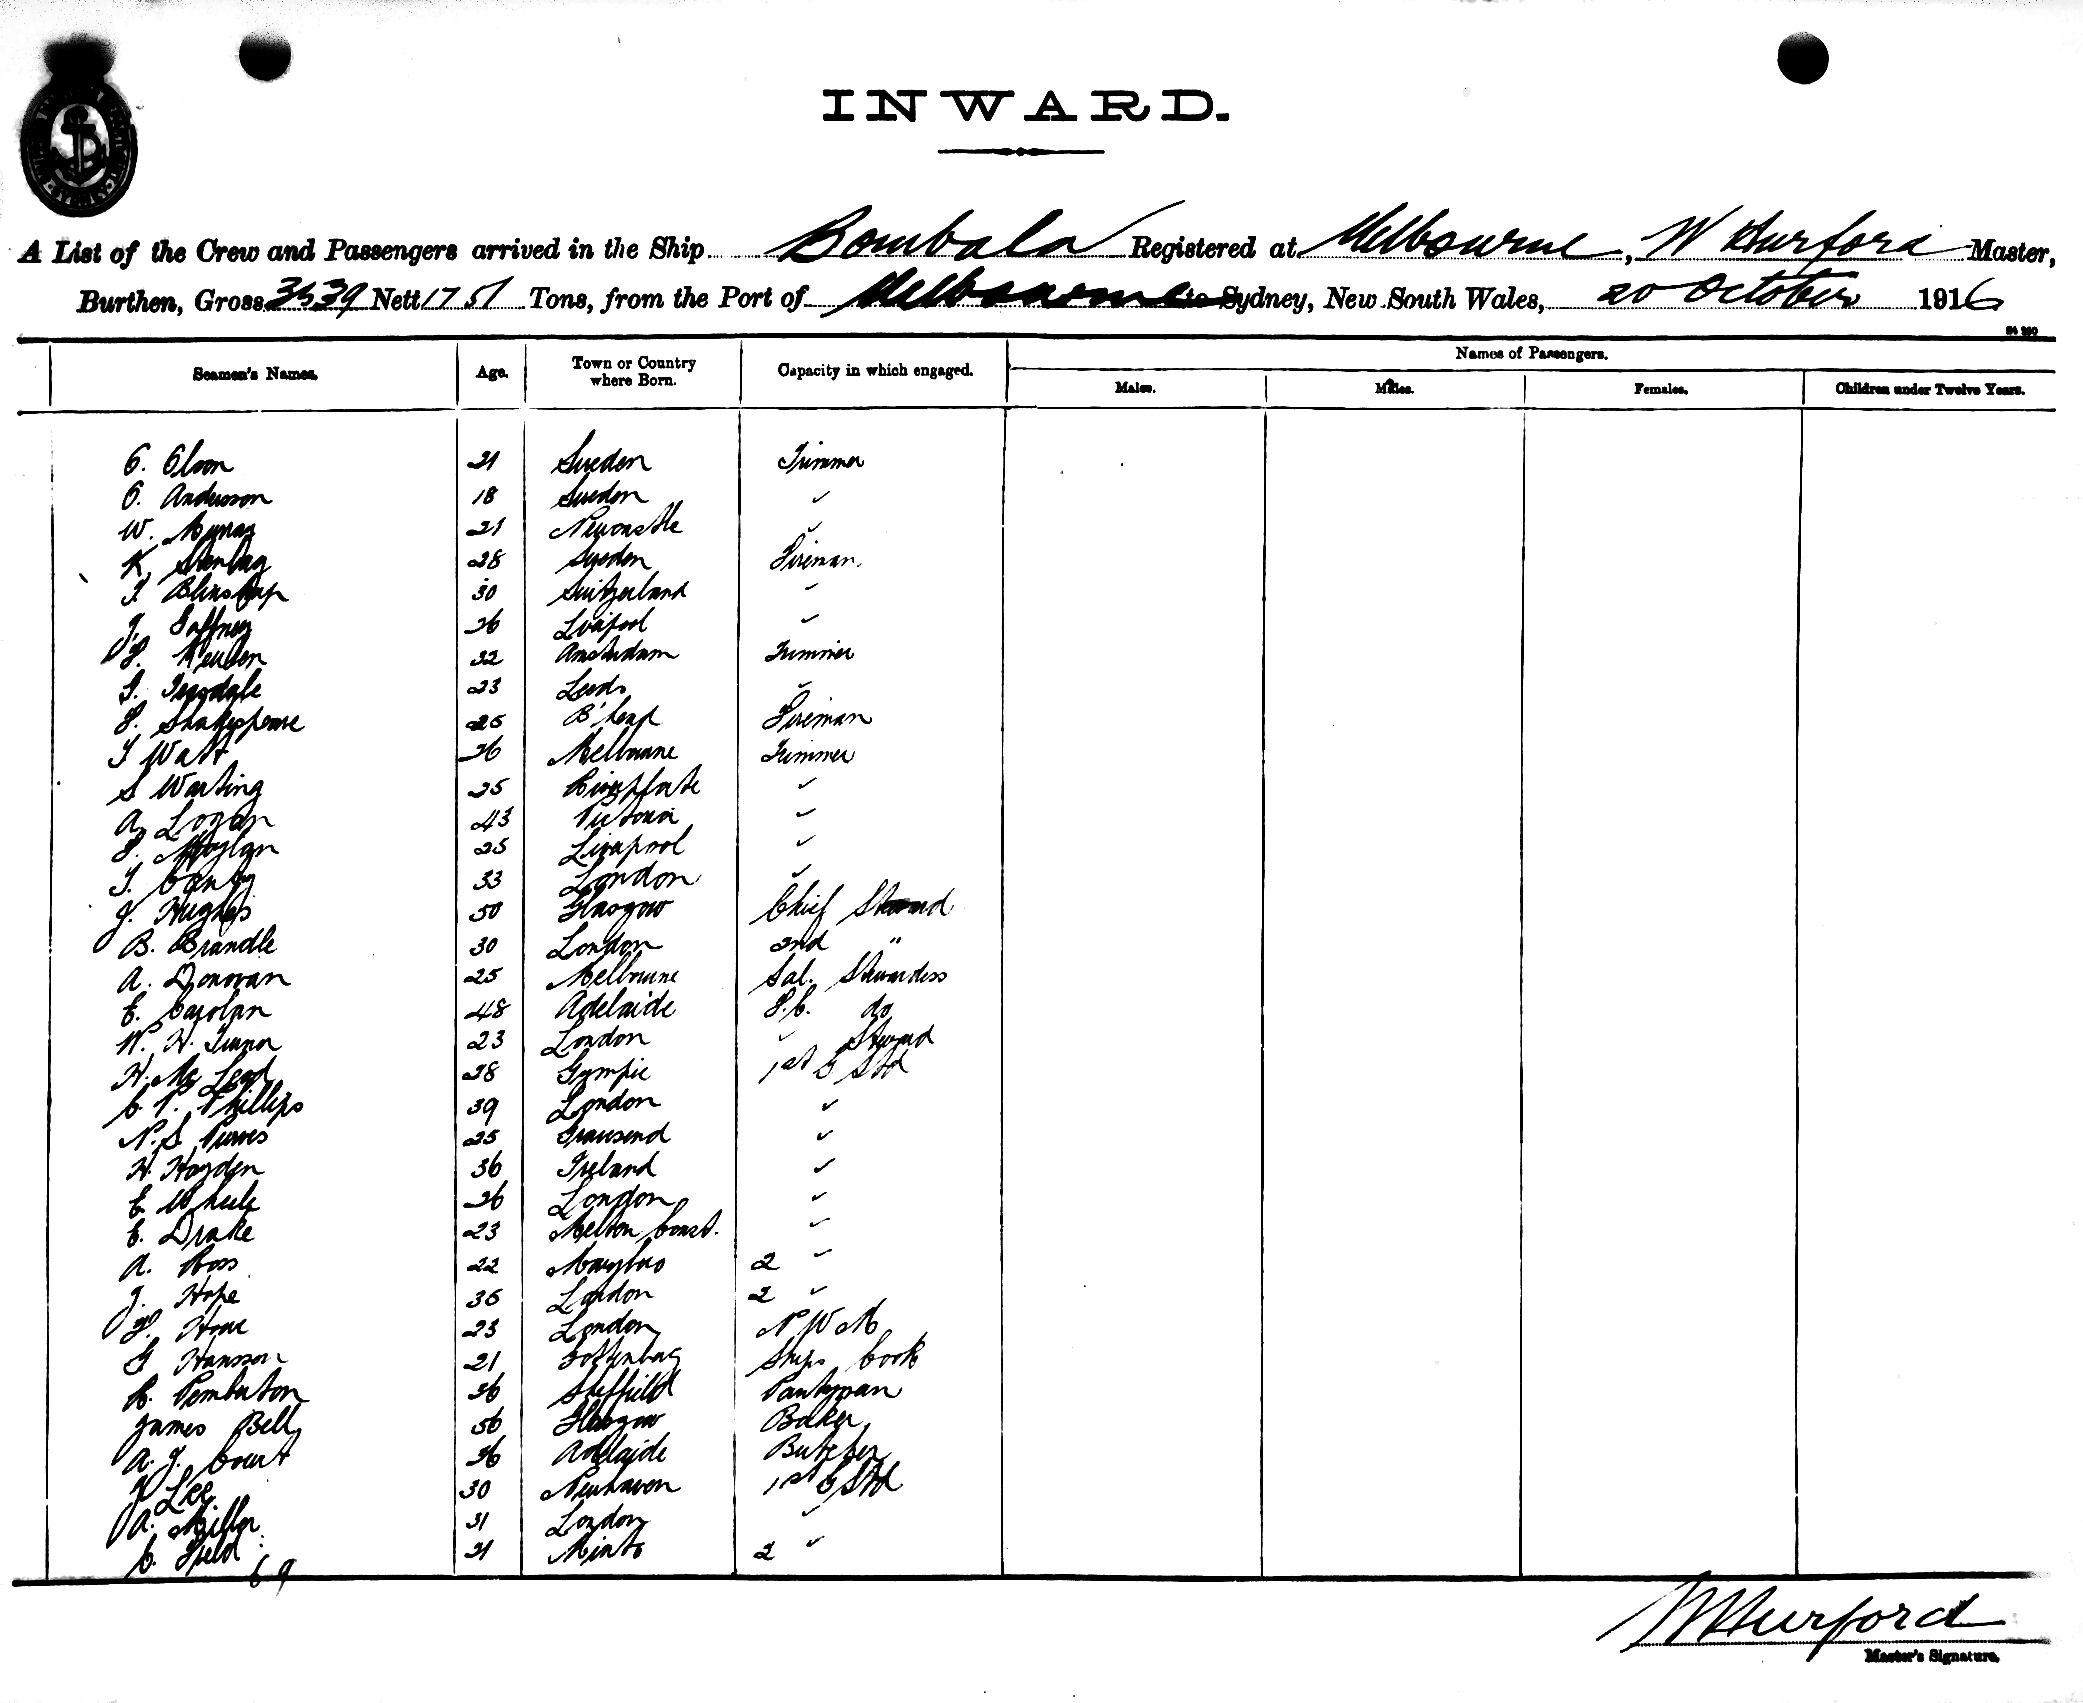 INWARD.
A List of the Crew and Passengers arrived in the Ship Bombala Registered at Melbourne, W Hurford Master,
Burthen, Gross 3539 Nett 1751 Tons, from the Port of Melbourne to Sydney, New South Wales, 20 October 1916
Names of Passengers.
Seamen's Names. Age. Town or Country where Born. Capacity in which engaged. Males. Males. Females. Children under Twelve Years.
O. Olson 21 Sweden Trimmer
O. Anderson 18 Sweden "
W. Murray 21 Newcastle "
K. 28 Sweden Fireman
30 Switzerland "
J. Gaffney 26 Liverpool "
32 Amsterdam Trimmer
T. Teasdale 23 Leeds "
Shakespeare 25 B'head Fireman
T Watt 26 Melbourne Trimmer
S Warting 25 Riverplate "
A. Logan 43 Victoria "
25 Liverpool "
T. Canty 33 London "
J. Hughes 50 Glasgow Chief Steward
B. Brandle 30 London 2nd "
A. Donovan 25 Melbourne Sal. Stewardess
E. Carolan 48 Adelaide S.C. do
W. H. 23 London " Steward
H. Mc Leod 28 Gympie 1st C Std
C P. Phillips 39 London "
N. S. Purves 25 Gravesend "
H. Hayden 36 Ireland "
E. Wheele 26 London "
E. Drake 23 Melton Const. "
A. Ross 22 Maryboro 2 "
J. Hope 36 London 2 "
23 London N W M
G Hansson 21 Gottenberg Ships Cook
C. Pemberton 26 Sheffield Pantryman
James Bell 56 Glasgow Baker
A. J. Court 36 Adelaide Butcher
J Lee 30 Newhaven 1st C Std
A. Miller 31 London "
C. Field 21 Minto 2 "
69
W Hurford
Master's Signature.